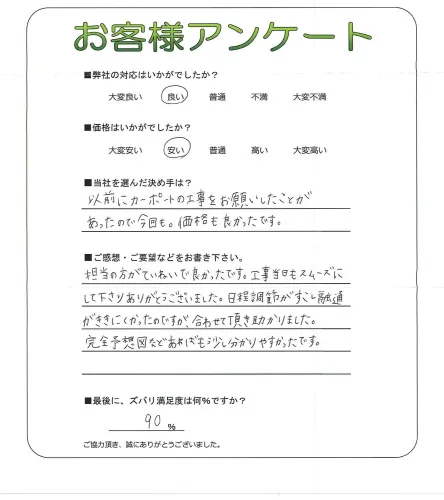 お客様アンケート
■弊社の対応はいかがでしたか？
大変良い 良い 普通 不満 大変不満
■価格はいかがでしたか？
大変安い 安い 普通 高い 大変高い
■当社を選んだ決め手は？
以前にカーポートの工事をお願いしたことが
あったので今回も。価格も良かったです。
■ご感想・ご要望などをお書き下さい。
担当の方がていねいで良かったです。工事当日もスムーズに
して下さりありがとうございました。日程調節がすこし融通
がききにくかったのですが、合わせて頂き助かりました。
完全予想図などあればもう少し分かりやすかったです。
■最後に、ズバリ満足度は何%ですか？
90 %
ご協力頂き、誠にありがとうございました。